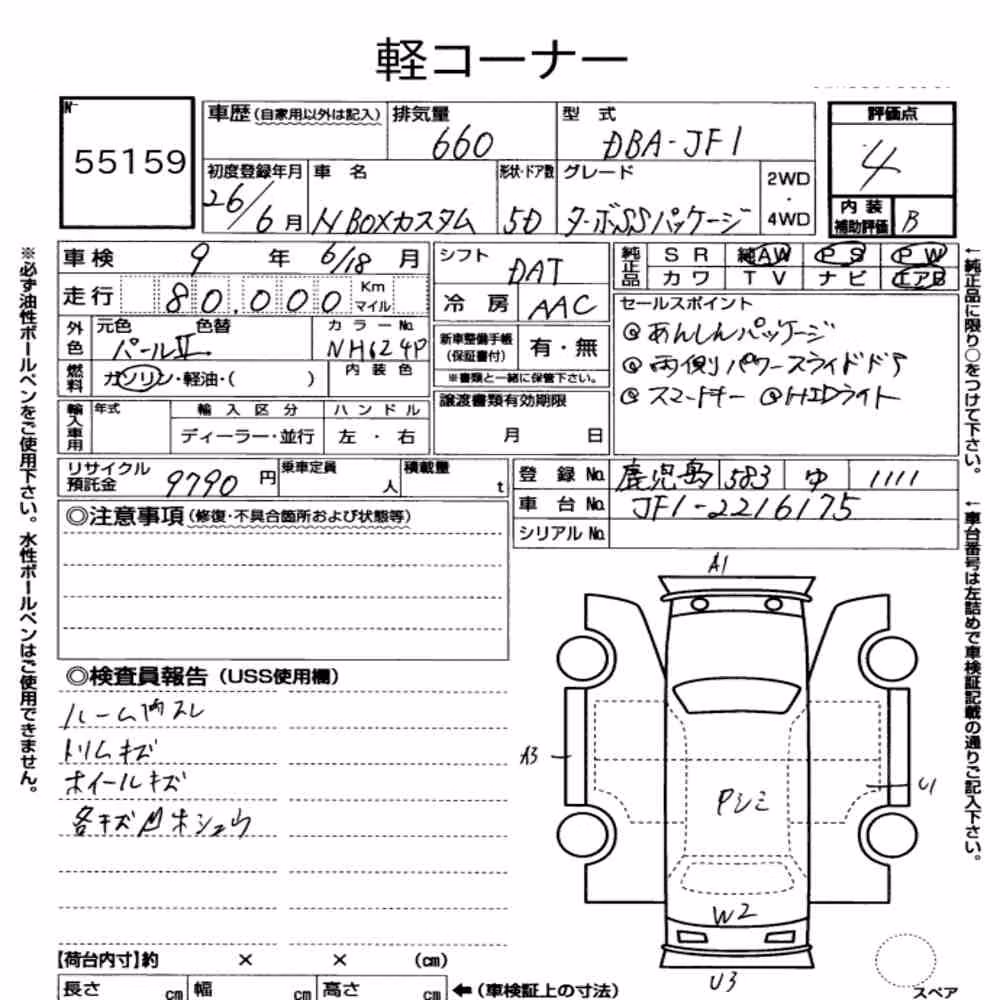 軽コーナー
No 55159
車歴(自家用以外は記入) 排気量 660 型式 DBA-JF1 評価点 4
初度登録年月 26/6月 車名 N BOXカスタム 形状・ドア数 5D グレード ターボSSパッケージ 2WD・4WD
内装補助評価 B
車検 9年 6/18月 シフト DAT 純正品 SR 純AW PS PW
カワ TV ナビ エアB
走行 80,000 Km マイル 冷房 AAC セールスポイント
外色 元色 パールII 色替 カラーNo. NH624P 新車整備手帳(保証書付) 有・無 ◎あんしんパッケージ
※書類と一緒に保管下さい。 ◎両側パワースライドドア
燃料 ガソリン・軽油・( ) 内装色 ◎スマートキー ◎HIDライト
輸入車用 年式 輸入区分 ハンドル 譲渡書類有効期限
ディーラー・並行 左・右 月 日
リサイクル預託金 9790円 乗車定員 人 積載量 t 登録No. 鹿児島 583 ゆ 1111
車台No. JF1-2216175
シリアルNo.
◎注意事項(修復・不具合箇所および状態等)
◎検査員報告(USS使用欄)
ルーム内スレ
トリムキズ
ホイールキズ
各キズ凹ホシュウ
A1
A3
U1
Pシミ
W2
U3
【荷台内寸】約 × × (cm)
長さ cm 幅 cm 高さ cm ←(車検証上の寸法)
スペア
※必ず油性ボールペンをご使用下さい。水性ボールペンはご使用できません。
←純正品に限り○をつけて下さい。
←車台番号は左詰めで車検証記載の通りご記入下さい。